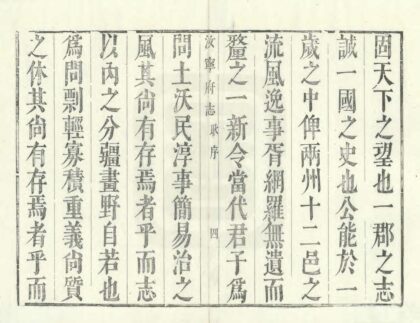 固天下之望也一郡之志
誠一國之史也公能於一
歲之中俾兩州十二邑之
流風逸事胥網羅無遺而
釐之一新令當代君子爲
汝寧府志 序 四
問土沃民淳事簡易治之
風其尙有存焉者乎而志
以內之分疆畫野自若也
爲問剽輕寡積重義尙質
之体其尙有存焉者乎而